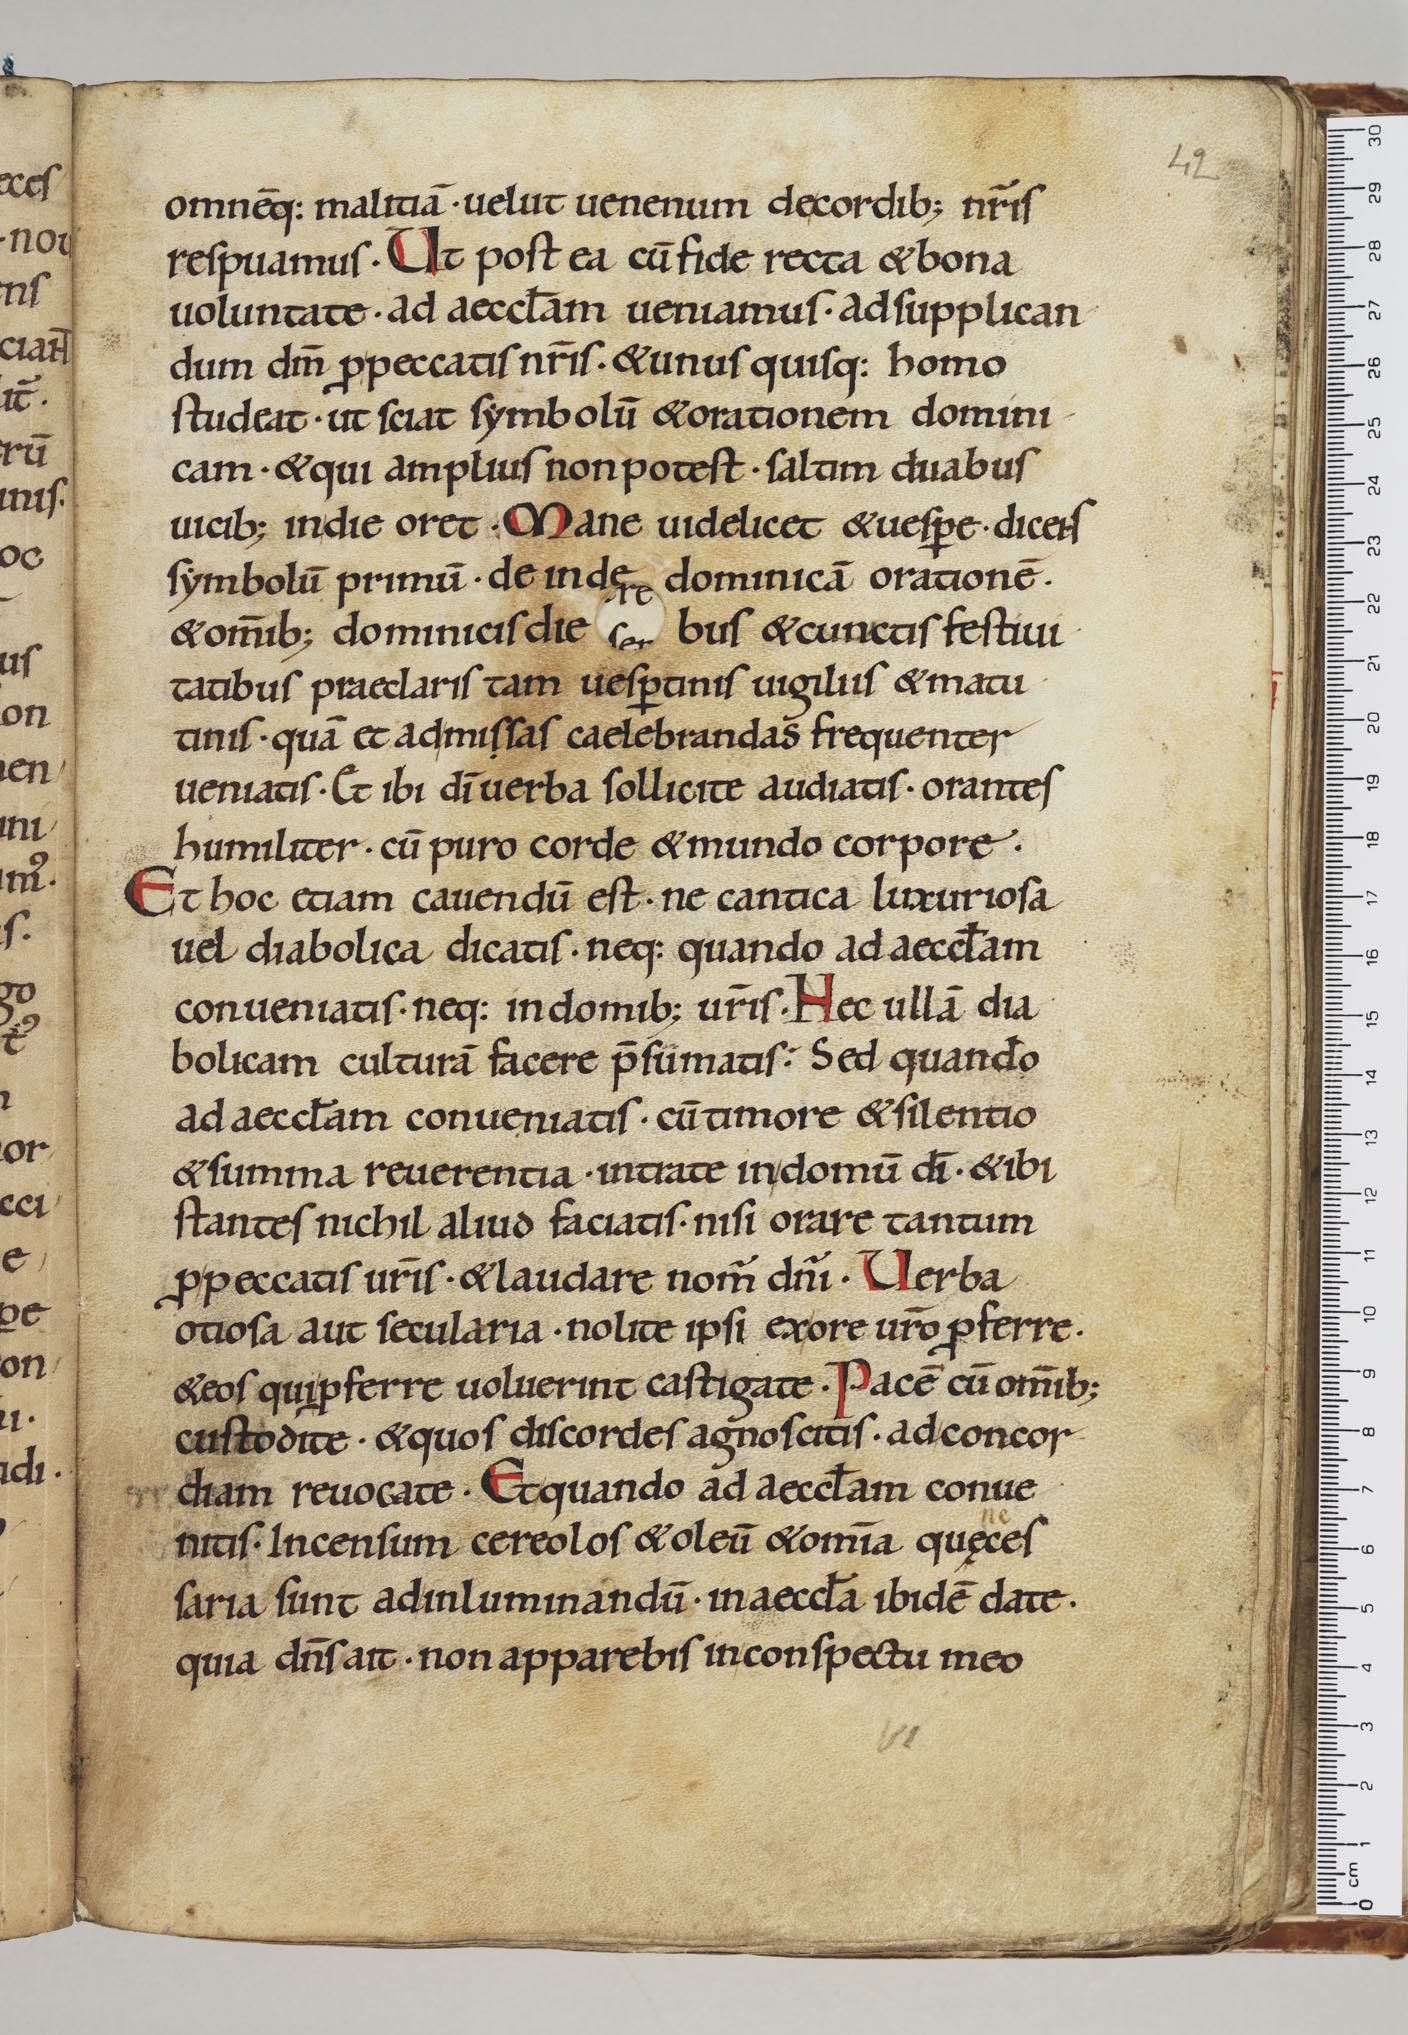 42
omnēq: malitiā · uelut uenenum decordib; nr̄is
respuamus · Ut post ea cū fide recta & bona
uoluntate · ad aeccl̄am ueniamus · ad supplican
dum dm̄ ꝓ peccatis nr̄is · & unus quisq: homo
studeat · ut sciat sẏmbolū & orationem domini
cam · & qui amplius non potest · saltim duabus
uicib; in die oret · Mane uidelicet & uesꝑe · dicens
sẏmbolū primū · de inde dominicā orationē ·
& om̄ib; dominicis die bus & cunctis festiui
tatibus praeclaris tam uesꝑtinis uigiliis & matu
tinis · quā et admissas caelebrandas frequenter
ueniatis · Et ibi dī uerba sollicite audiatis · orantes
humiliter · cū puro corde & mundo corpore ·
Et hoc etiam cauendū est · ne cantica luxuriosa
uel diabolica dicatis · neq: quando ad aeccl̄am
conueniatis · neq: in domib; ur̄is · Nec ullā dia
bolicam culturā facere p̄sumatis · Sed quando
ad aeccl̄am conueniatis · cū timore & silentio
& summa reuerentia · intrate in domū dī · & ibi
stantes nichil aliud faciatis · nisi orare tantum
ꝓ peccatis ur̄is · & laudare nom̄ dn̄i · Uerba
otiosa aut secularia · nolite ipsi exore ur̄o ꝓferre ·
& eos qui ꝓferre uoluerint castigate · Pacē cū om̄ib;
custodite · & quos discordes agnoscitis · ad concor
diam reuocate · Et quando ad aeccl̄am conue
nitis · Incensum cereolos & oleū & om̄ia quę ne ces
saria sunt ad inluminandū · in aeccl̄a ibidē date ·
quia dn̄s ait · non apparebis in conspectu meo
VI